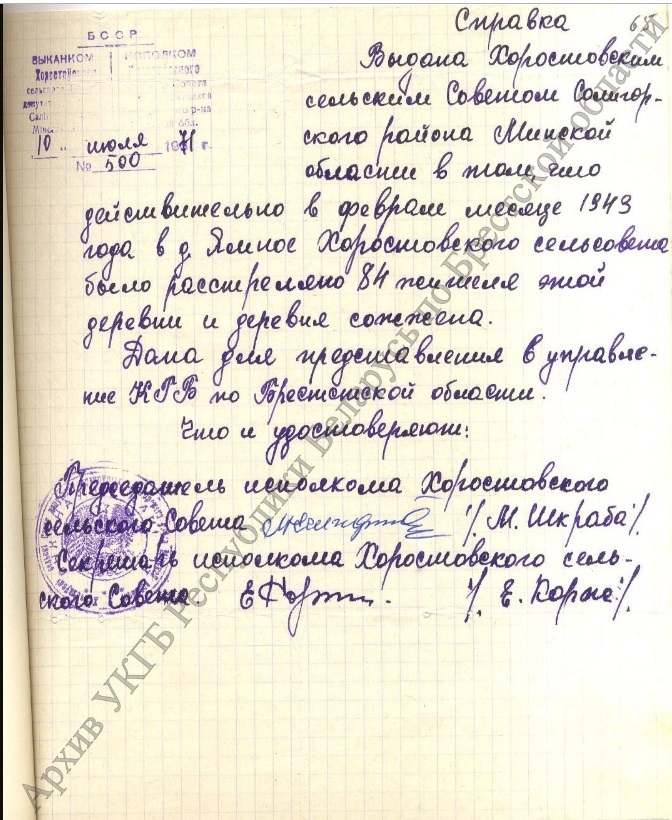 65
Справка
БССР
ВЫКАНКОМ
ИСПОЛКОМ
10 " июля 1971 г.
№ 500
Выдана Хоростовским
сельским Советом Солигор-
ского района Минской
области в том, что
действительно в феврале месяце 1943
года в д. Ямное Хоростовского сельсовета
было расстреляно 84 жителя этой
деревни и деревня сожжена.
Дана для представления в управле-
ние КГБ по Брестской области.
Что и удостоверяют:
Председатель исполкома Хоростовского
сельского Совета /М. Шкраба/.
Секретарь исполкома Хоростовского сель-
ского Совета /Е. Коржа/.
Архив УКГБ Республики Беларусь по Брестской области